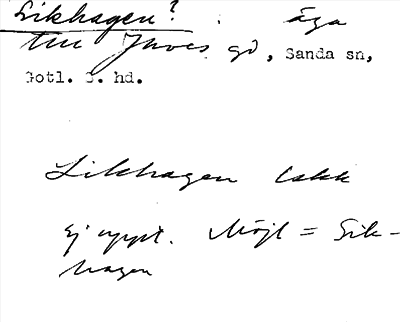 Sikhagen? . äga
till Juves gd, Sanda sn,
Gotl. S. hd.
Likhagen Iakk
Ej uppt. Möjl = Sik-
hagen